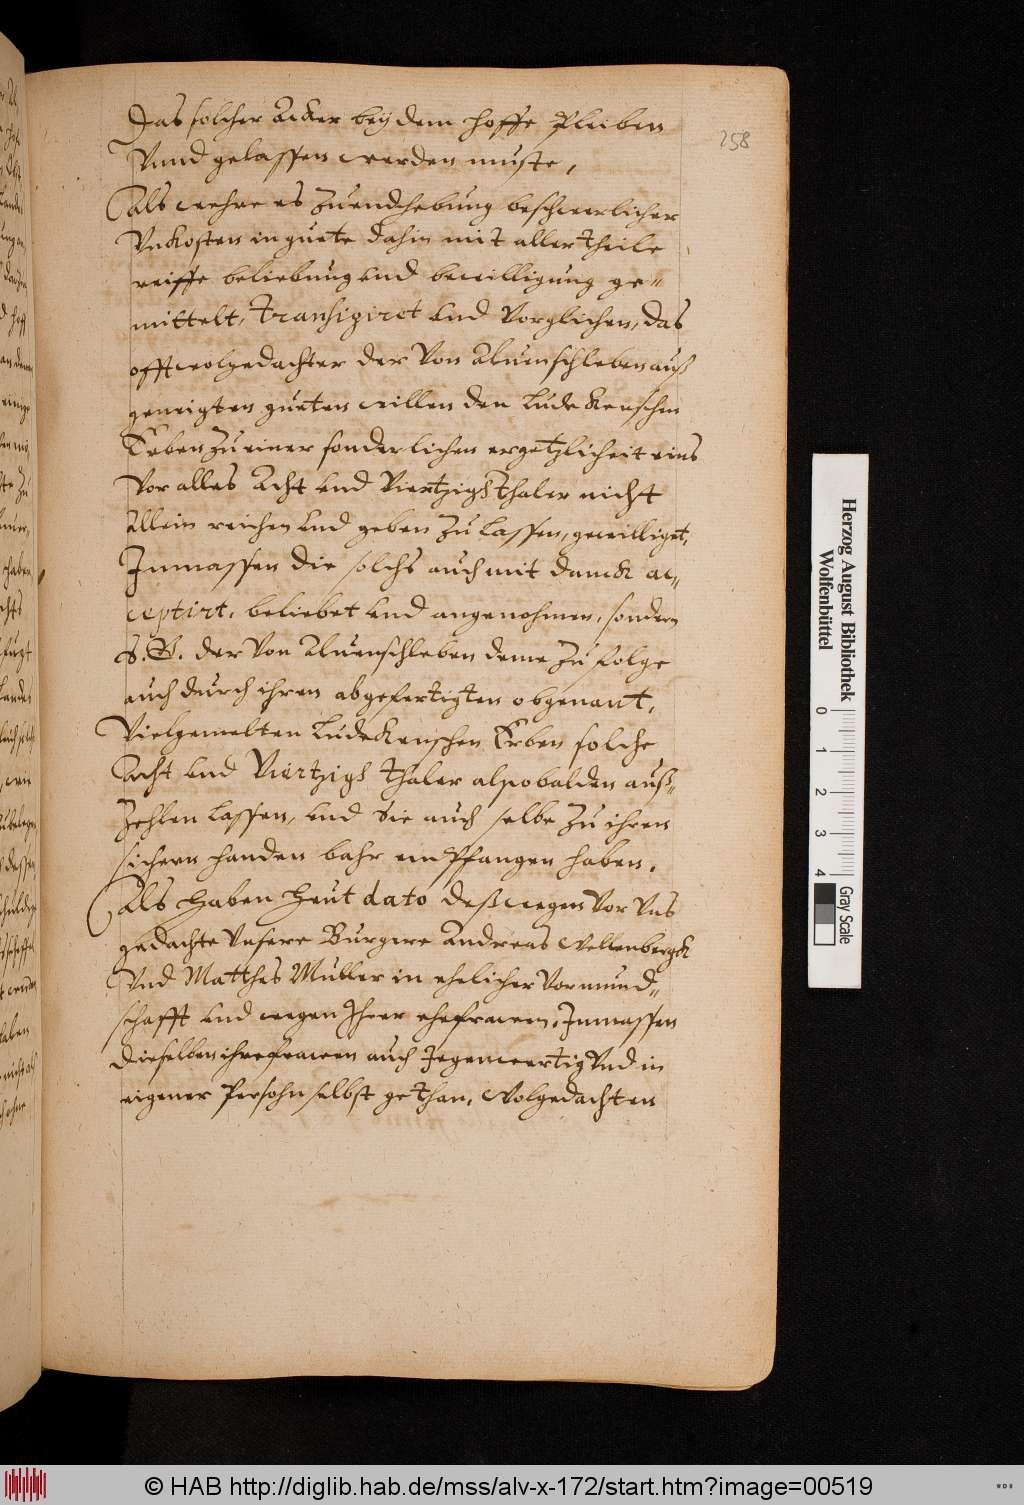 258
Das solcher Acker beÿ dem hoffe Pleiben
Vnnd gelassen werden muste,
Als wehre es zu endthebung beschwerlicher
Vnkosten in guete dahin mit aller theile
reiffe beliebung vnd bewilligung ge=
mittelt, transigiret vnd Vorglichen, das
offtwolgedachter der Von Aluenschleben auß
geneigten gueten willen den Ludekenschen
Erben zu einer sonderlichen ergetzlicheit eins
Vor alles Acht vnd Viertzigh thaler nicht
Allein reichen vnd geben zu lassen, gewilliget,
Inmassen die solchs auch mit danck ac=
ceptirt, beliebet vnd angenohmen, sondern
S. G. der Von Aluenschleben deme zu folge
auch durch ihren abgefertigten obgenant,
Vielgemelten Ludekenschen Erben solche
Acht vnd Viertzigh thaler alsobalden auß=
zehlen lassen, vnd Sie auch selbe zu ihren
sichern handen bahr endtpfangen haben,
Als haben heut dato deßwegen Vor Vns
gedachte Vnsere Burgere Andreas Wellenbergk
Vnd Matthes Muller in ehelicher Vormund=
schafft vnd wegen Ihrer ehefrawen, Inmassen
dieselben ihre frawen auch Jegenwertig Vnd in
eigener Persohn selbst gethan, Wolgedachten
Herzog August Bibliothek
Wolfenbüttel
0 1 2 3 4
Gray Scale
© HAB http://diglib.hab.de/mss/alv-x-172/start.htm?image=00519